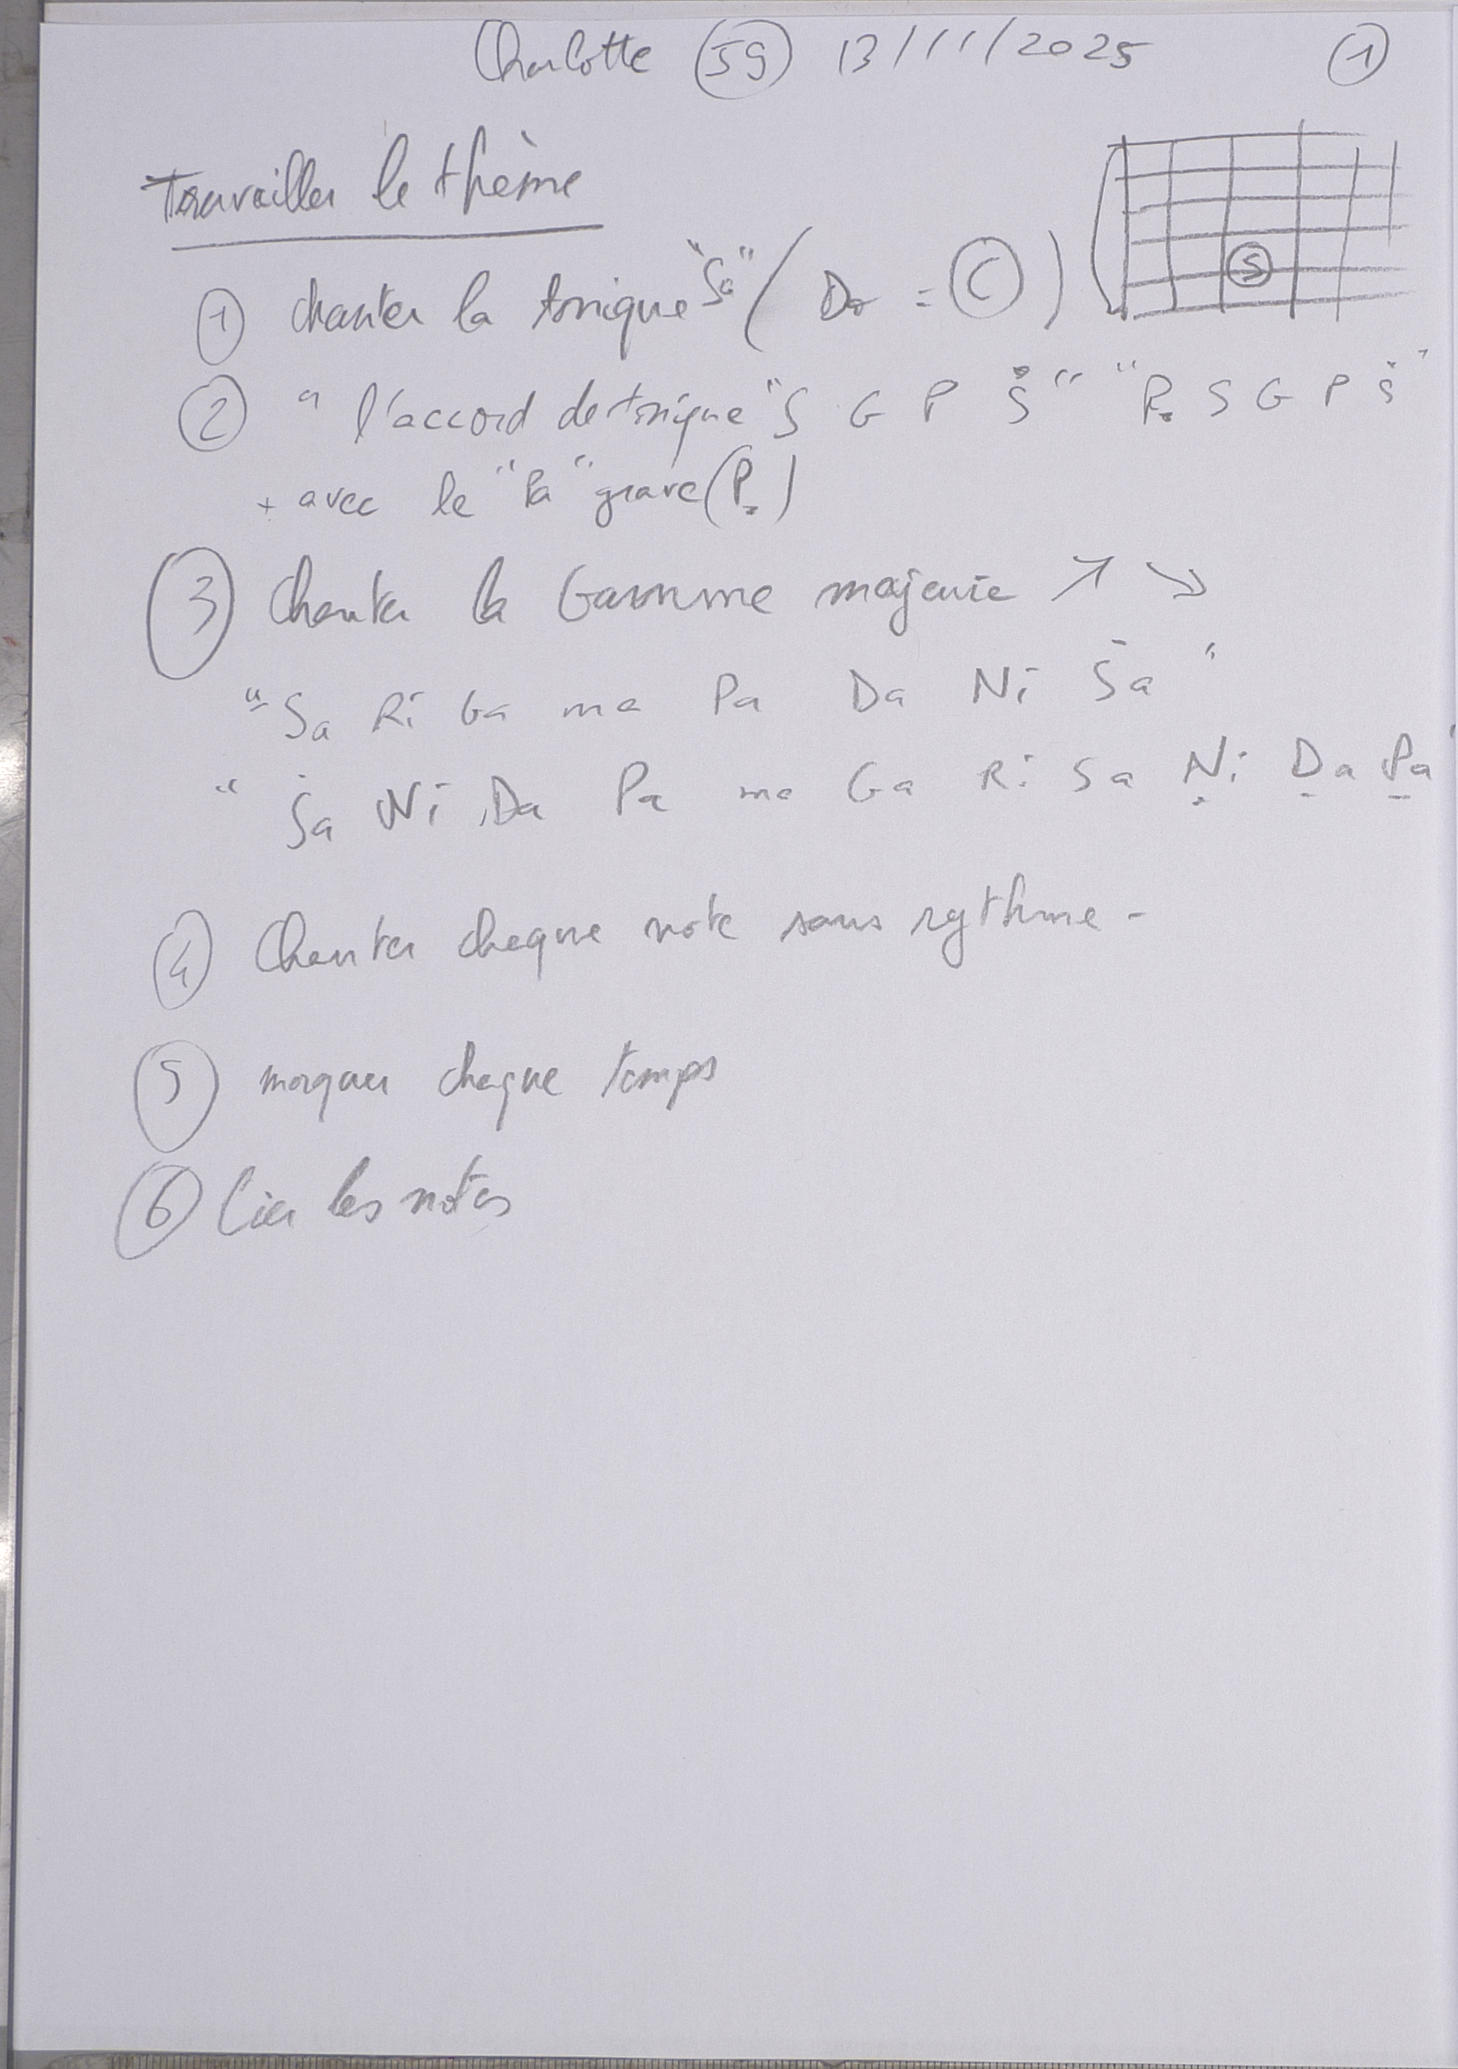 Charlotte 59 13/11/2025 1
Travailler le thème
1 chanter la tonique "Sa" ( Do = C )
S
2 " l'accord de tonique "S G P Ṡ" "P̣ S G P Ṡ"
+ avec le "Pa" grave (P̣)
3 Chanter la Gamme majeure ↗ ↘
"Sa Ri Ga ma Pa Da Ni Ṡa"
"Ṡa Ni Da Pa ma Ga Ri Sa Ṇi Ḍa P̣a"
4 Chanter chaque note sans rythme -
5 marquer chaque temps
6 Lier les notes